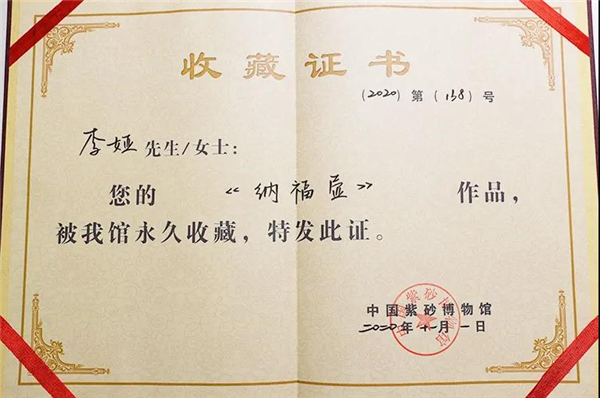 收藏证书
(2020)第(138)号
李娅先生/女士：
您的《纳福壶》作品，
被我馆永久收藏，特发此证。
中国紫砂博物馆
2020年十一月一日
中国紫砂博物馆